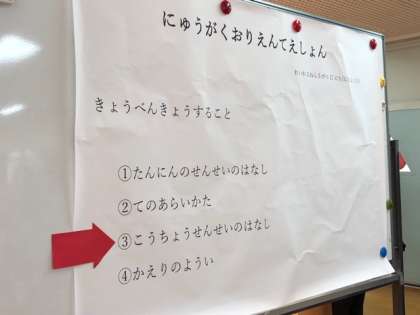 にゅうがくおりえんてえしょん
きょうべんきょうすること
①たんにんのせんせいのはなし
②てのあらいかた
③こうちょうせんせいのはなし
④かえりのようい